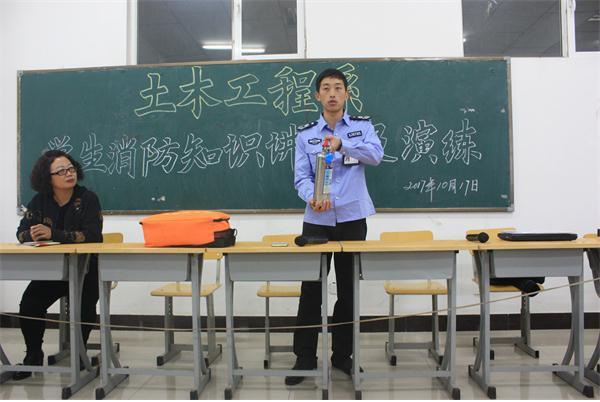 土木工程系
学生消防知识讲 及演练
2017年10月17日